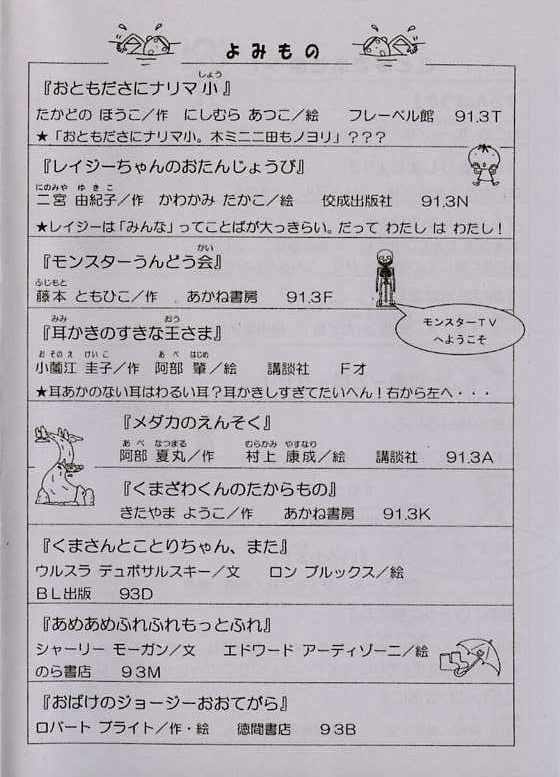 よみもの
『おともださにナリマ小』
しょう
たかどの ほうこ／作 にしむら あつこ／絵 フレーベル館 91.3T
★「おともださにナリマ小。木ミニ二田もノヨリ」？？？
『レイジーちゃんのおたんじょうび』
にのみや ゆきこ
二宮 由紀子／作 かわかみ たかこ／絵 佼成出版社 91.3N
★レイジーは「みんな」ってことばが大っきらい。だって わたし は わたし！
『モンスターうんどう会』
かい
ふじもと
藤本 ともひこ／作 あかね書房 91.3F
モンスターTV
へようこそ
『耳かきのすきな王さま』
みみ おう
おそのえ けいこ あべ はじめ
小薗江 圭子／作 阿部 肇／絵 講談社 Fオ
★耳あかのない耳はわるい耳？耳かきしすぎてたいへん！右から左へ・・・
『メダカのえんそく』
あべ なつまる むらかみ やすなり
阿部 夏丸／作 村上 康成／絵 講談社 91.3A
『くまざわくんのたからもの』
きたやま ようこ／作 あかね書房 91.3K
『くまさんとことりちゃん、また』
ウルスラ デュボザルスキー／文 ロン ブルックス／絵
BL出版 93D
『あめあめふれふれもっとふれ』
シャーリー モーガン／文 エドワード アーディゾーニ／絵
のら書店 93M
『おばけのジョージーおおてがら』
ロバート ブライト／作・絵 徳間書店 93B